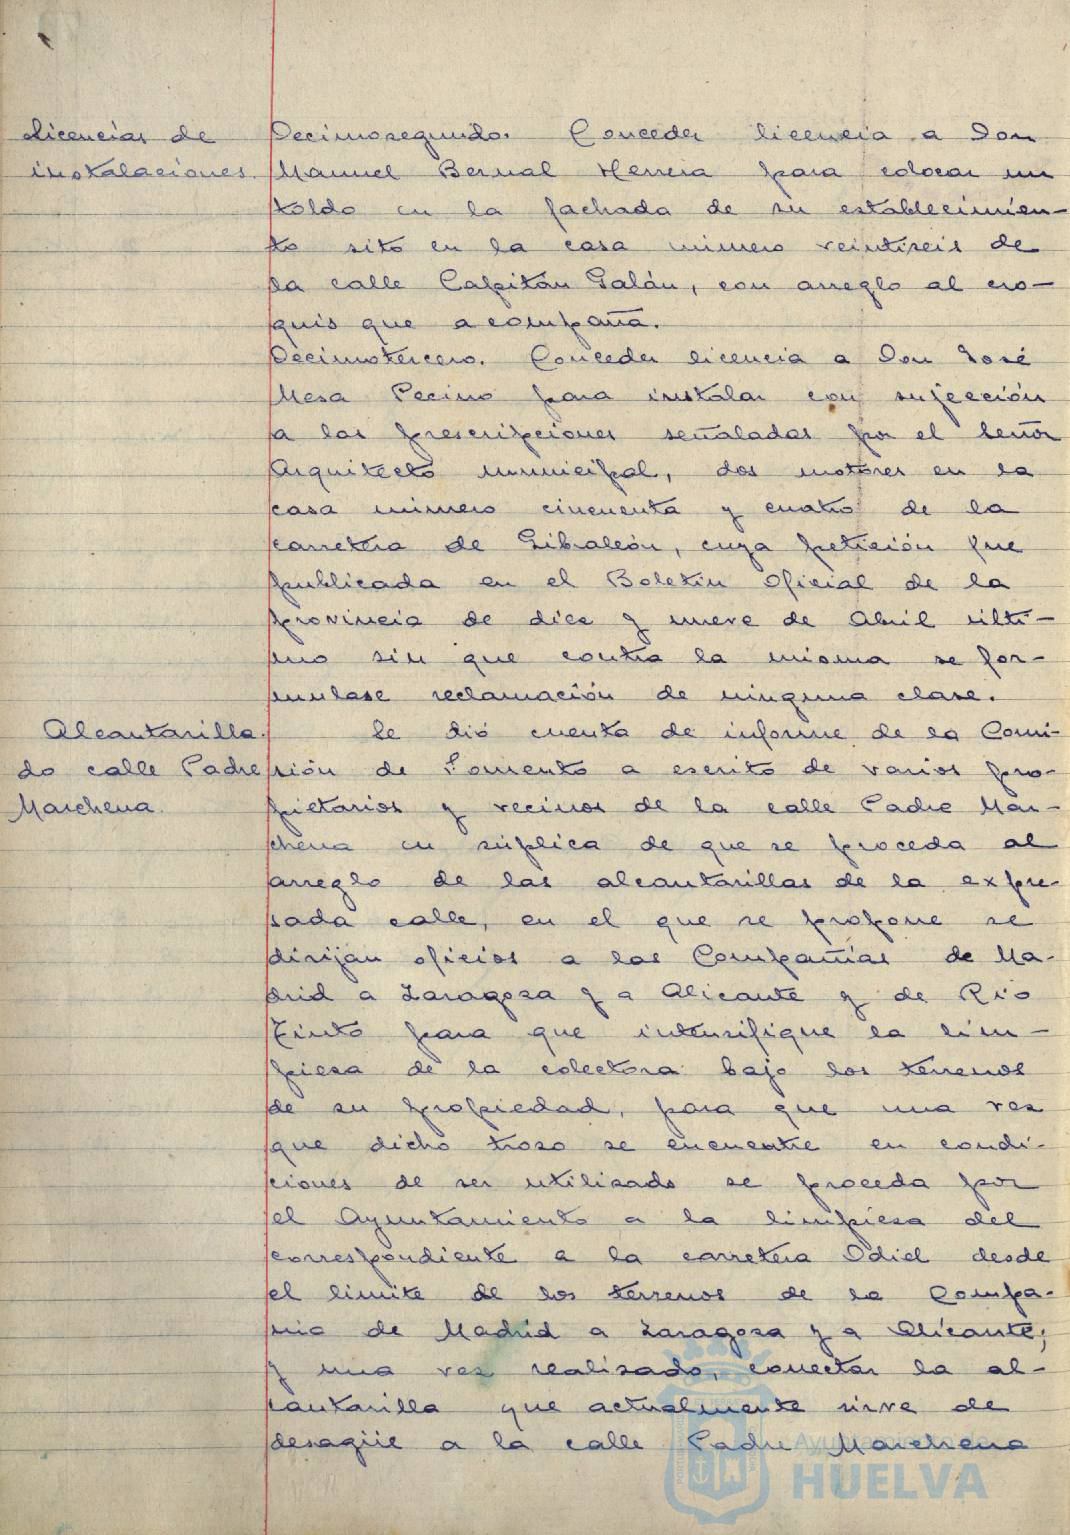 Licencias de
instalaciones.
Decimosegundo. Conceder licencia a Don
Manuel Bernal Herrera para colocar un
toldo en la fachada de su establecimien-
to sito en la casa número veintiseis de
la calle Capitán Galán, con arreglo al cro-
quis que acompaña.
Decimotercero. Conceder licencia a Don José
Mesa Pecino para instalar con sujección
a las prescripciones señaladas por el Señor
Arquitecto municipal, dos motores en la
casa número cincuenta y cuatro de la
carretera de Gibraleón, cuya petición fue
publicada en el Boletín Oficial de la
provincia de diez y nueve de Abril últi-
mo sin que contra la misma se for-
mulase reclamación de ninguna clase.
Alcantarilla-
do calle Padre
Marchena.
Se dió cuenta de informe de la Comi-
sión de Fomento a escrito de varios pro-
pietarios y vecinos de la calle Padre Mar-
chena en súplica de que se proceda al
arreglo de las alcantarillas de la expre-
sada calle, en el que se propone se
dirijan oficios a las Compañías de Ma-
drid a Zaragoza y a Alicante y de Rio
Tinto para que intensifique la lim-
pieza de la colectora bajo los terrenos
de su propiedad, para que una vez
que dicho trozo se encuentre en condi-
ciones de ser utilizado se proceda por
el Ayuntamiento a la limpieza del
correspondiente a la carretera Odiel desde
el limite de los terrenos de la Compa-
ñia de Madrid a Zaragoza y a Alicante;
y una vez realizado, conectar la al-
cantarilla que actualmente sirve de
desagüe a la calle Padre Marchena
Ayuntamiento de
HUELVA